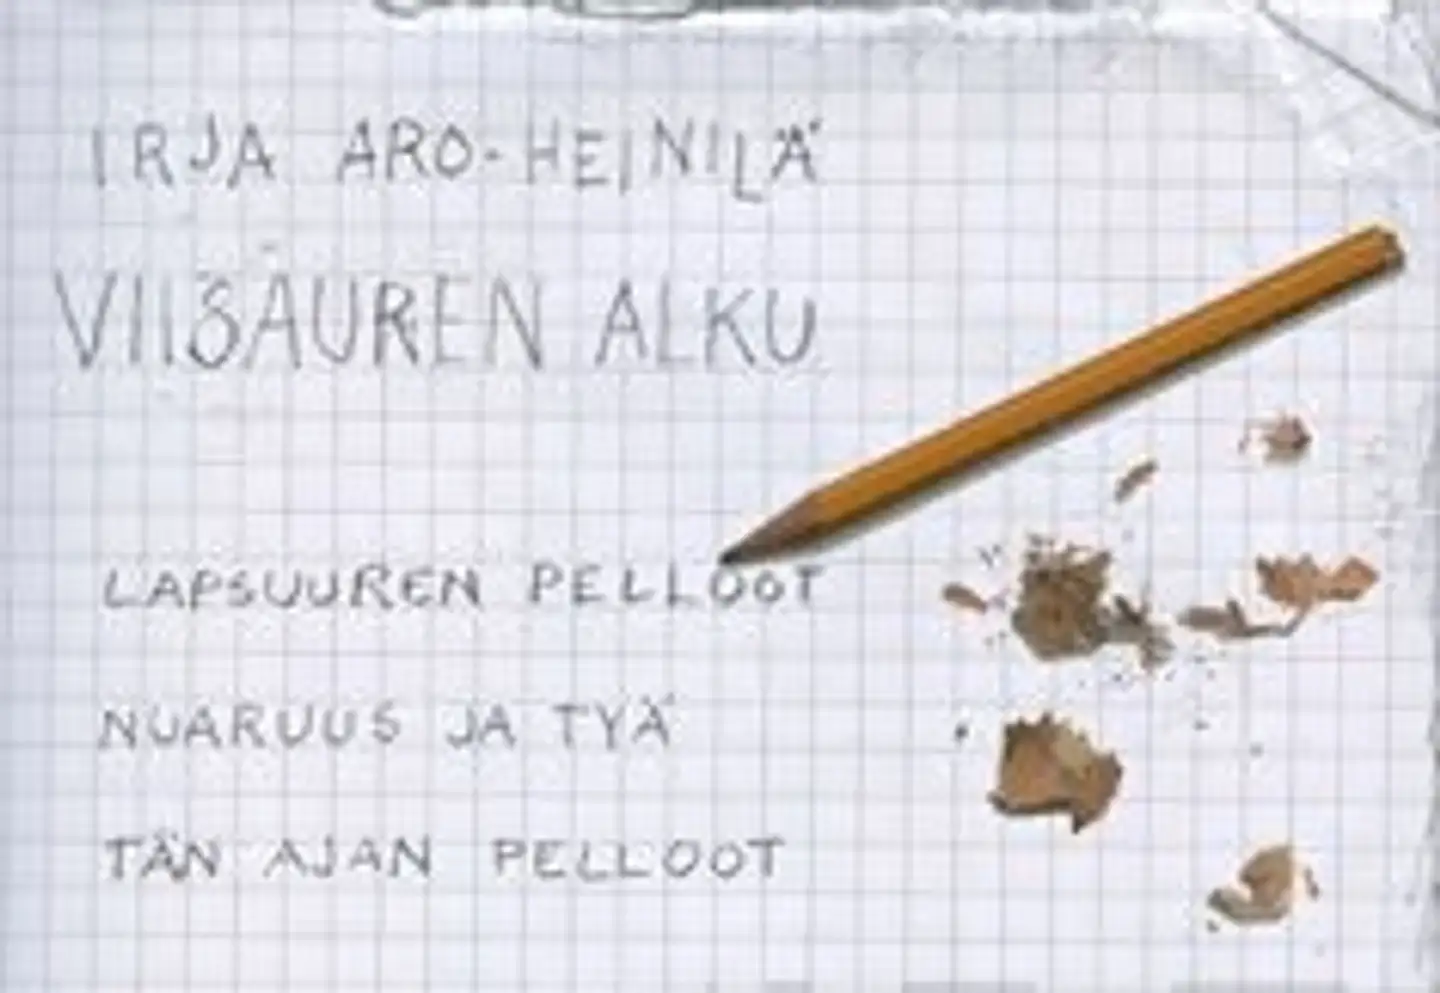 IRJA ARO-HEINILÄ
VIISAUREN ALKU
LAPSUUREN PELLOOT
NUARUUS JA TYÄ
TÄN AJAN PELLOOT